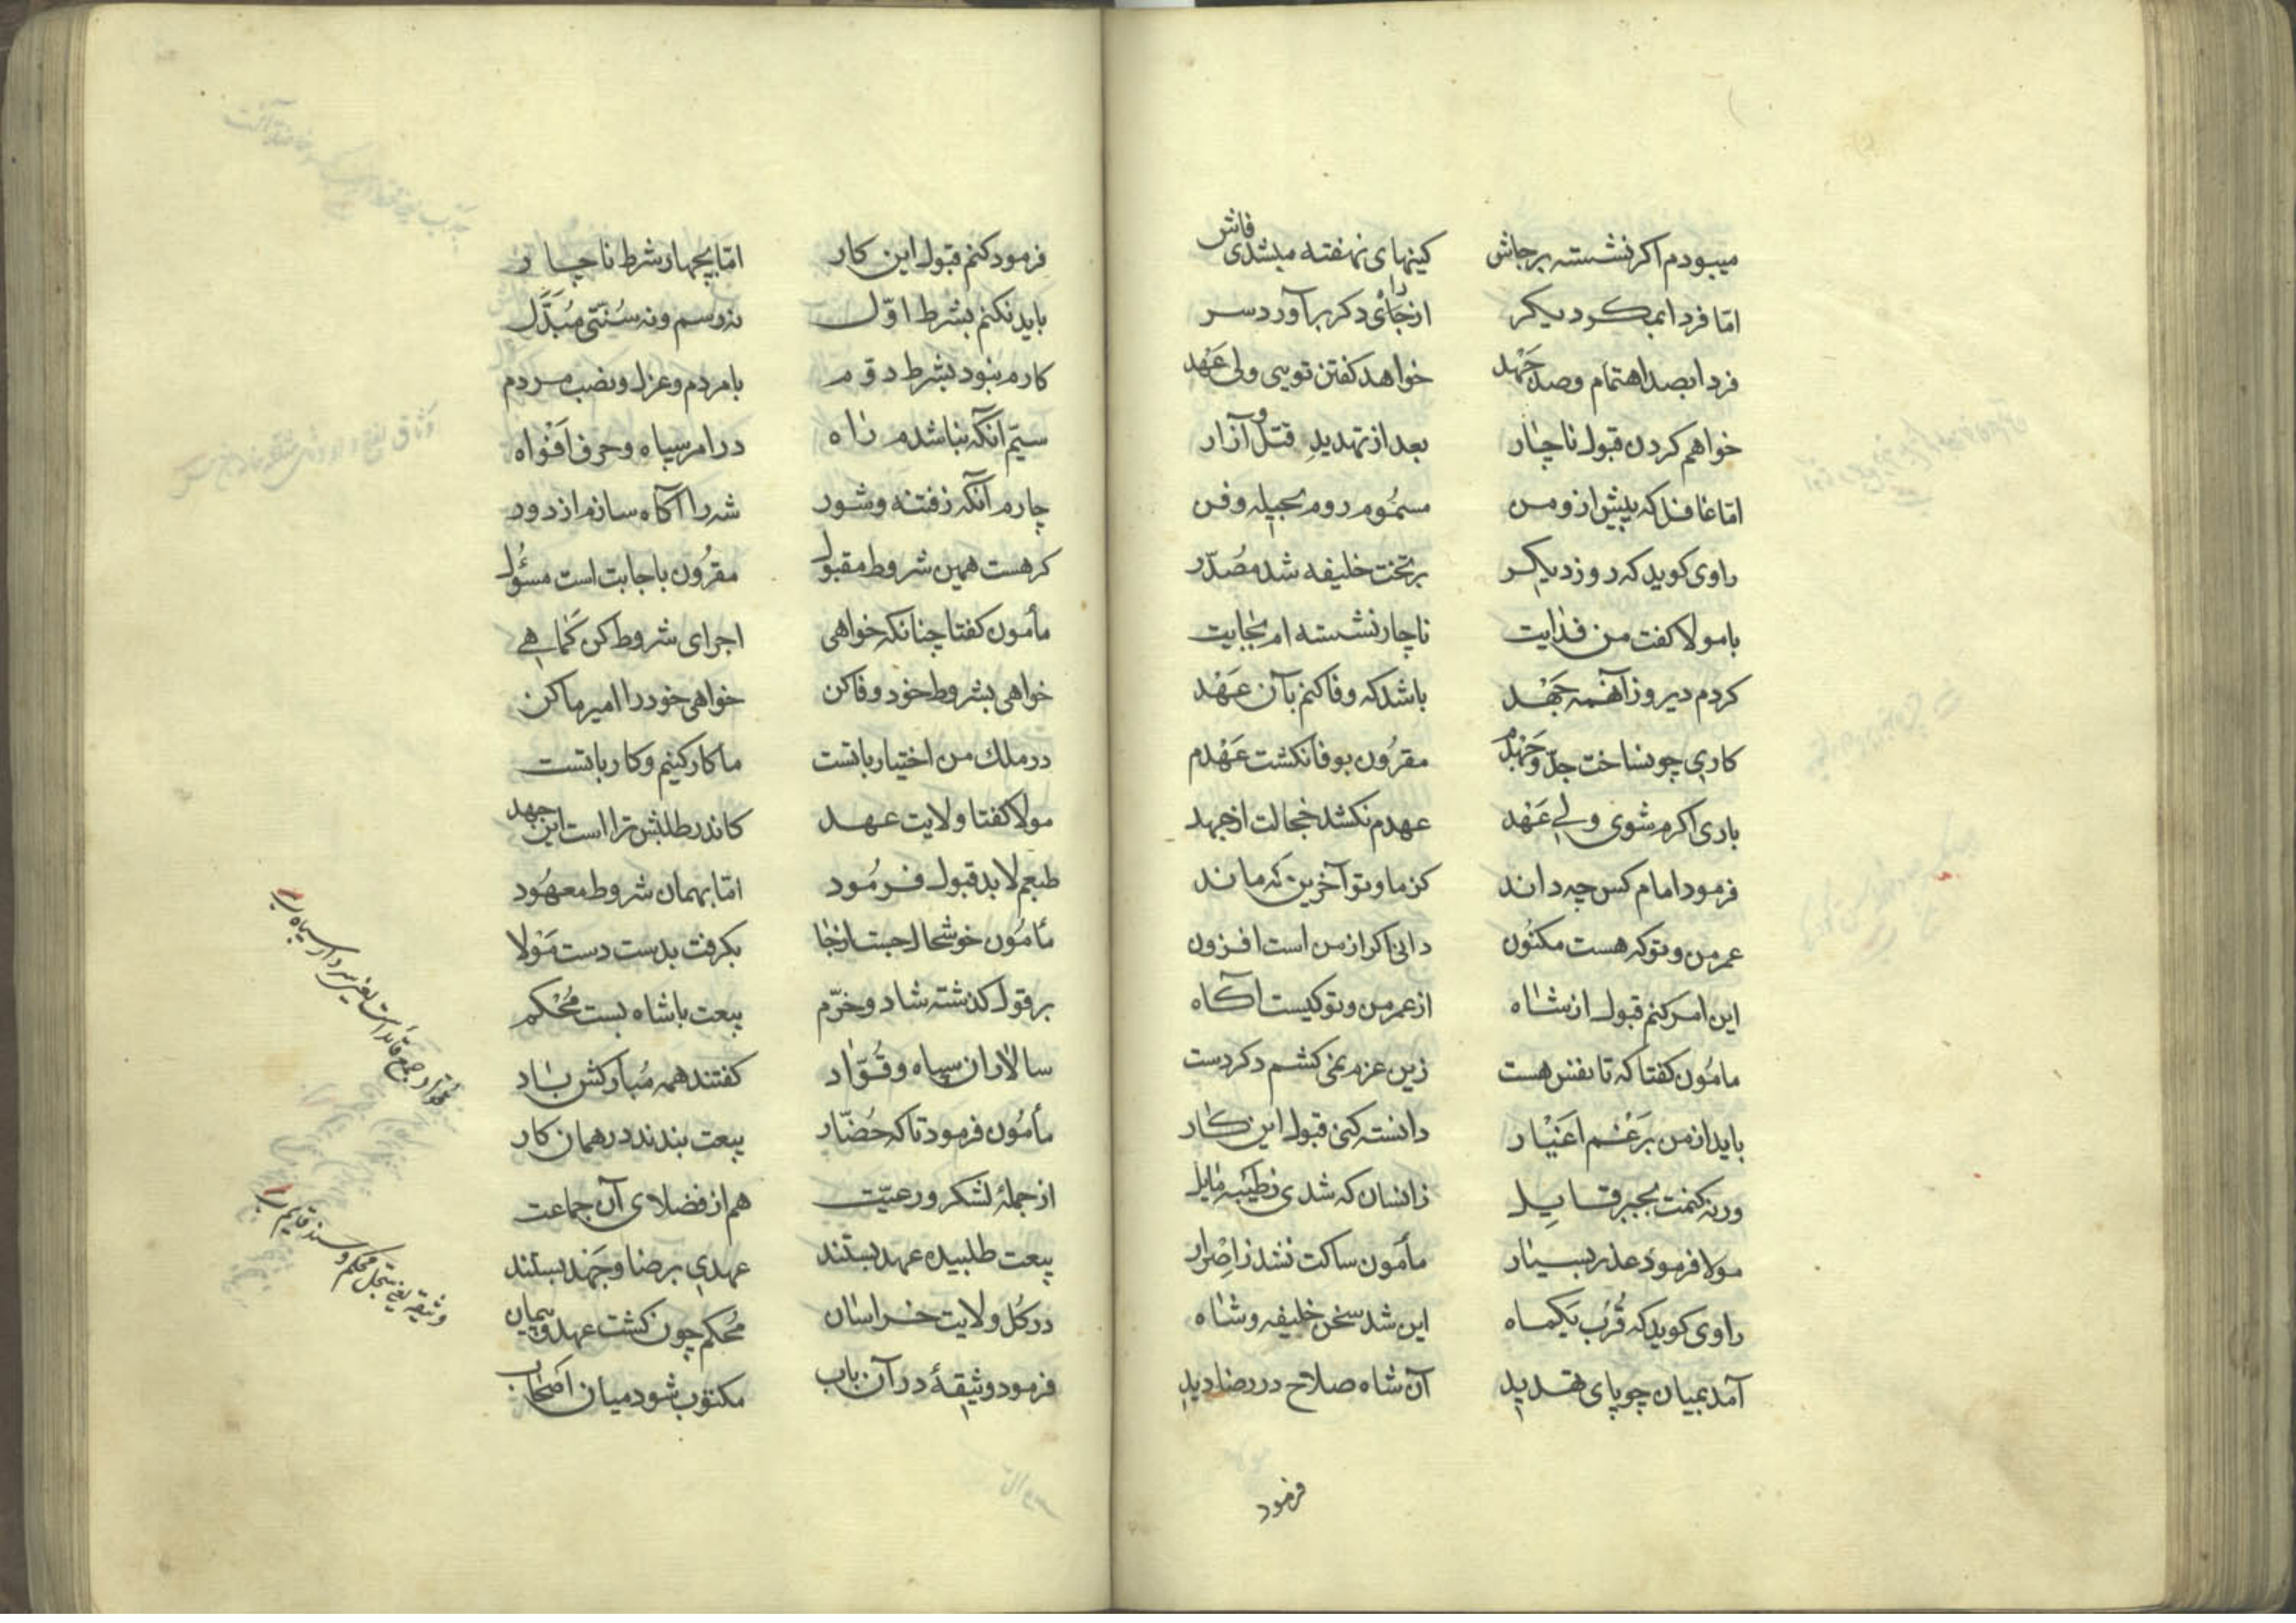 میبودم اکر نشسته بر جاش کینهای نهفته میشدی فاش
امّا فردا بمکر دیکر از جای دکر برآورد سر
فردا بصد اهتمام وصد جَهْد خواهد کفتن تویی ولی عَهْد
خواهم کردن قبول ناچار بعد از تهدیدِ قتل و آزار
امّا غافل که پیش ازو من مسمُوم روم بحیله و فن
راوی کوید که روز دیکر بر تخت خلیفه شد مصُدّر
با مولا کفت من فدایت ناچار نشسته ام بجایت
کردم دیروز آنهمه جَهْد باشد که وفا کنم بآن عَهْد
کاری چو نساخت جدّ و جَهْدم مقرُون بوفا نکشت عَهْدم
باری اکرم شوی ولی عَهْد عهدم نکشد خجالت از جهد
فرمود امام کس چه داند کز ما و تو آخرین که ماند
عمر من و تو که هست مکنُون دانی اکر از من است افزون
این امر کنم قبول از شاه از عمر من و تو کیست آکاه
مامُون کفتا که تا نفس هست زین عزم نمی کشم دکر دست
باید از من بِرَغْم اَغیْار دانسته کنی قبول این کار
ورنه کنمت بجبر قایِل زانسان که شدی بطَیّبه مایل
مولا فرمود عذر بسیار مأمون ساکت نشد زاِصْرار
راوی کوید که قُرْب یَکماه این شد سخن خلیفه و شاه
آمد بمیان چو پای تهدید آن شاه صلاح در رضا دید
فرمود
فرمود کنم قبول این کار امّا بچهار شرط ناچار
باید نکنم بشرط اوّل نه رسم و نه سُنّتی مُبَدَّل
کارم نبود بشرط دوّم با مردم و عزل و نصب مردم
سیّم آنکه نباشدم راه در امر سپاه و حرف اَفْواه
چارم آنکه ز فتنه و شور شه را آکاه سازم از دور
کر هست همین شروط مقبول مقرُون باجابت است مسئُول
مأمون کفتا چنانکه خواهی اجرای شروط کن کَما هی
خواهی بشروط خود وفا کن خواهی خود را امیر ما کن
در ملك من اختیار باتست ما کار کنیم و کار باتست
مولا کفتا ولایت عهد کاندر طلبش ترا است این جهد
طبعم لابد قبول فرمُود امّا بهمان شروط معهُود
مأمُون خوشحال جست از جا بکرفت بدست دست مَوْلا
بر قول کذشته شاد و خرّم بیعت با شاه بست مُحْکم
سالاران سپاه و قُوّاد کفتند همه مُبارکش باد
مأمُون فرمود تا که حُضّار بیعت بندند در همان کار
از جملهٔ لشکر و رعیّت هم از فضلای آن جماعت
بیعت طلبیده عهد بستند عهدی برضا و جَهْد بستند
در کُل ولایت خراسان مُحکم چون کشت عهد و پیمان
فرمود وثیقهٔ در آن باب مکتوب شود میان اَصْحاب
قوّاد جمع قائد است یعنی سردار سپاه
وثیقه یعنی سجل محکم و سند قایم